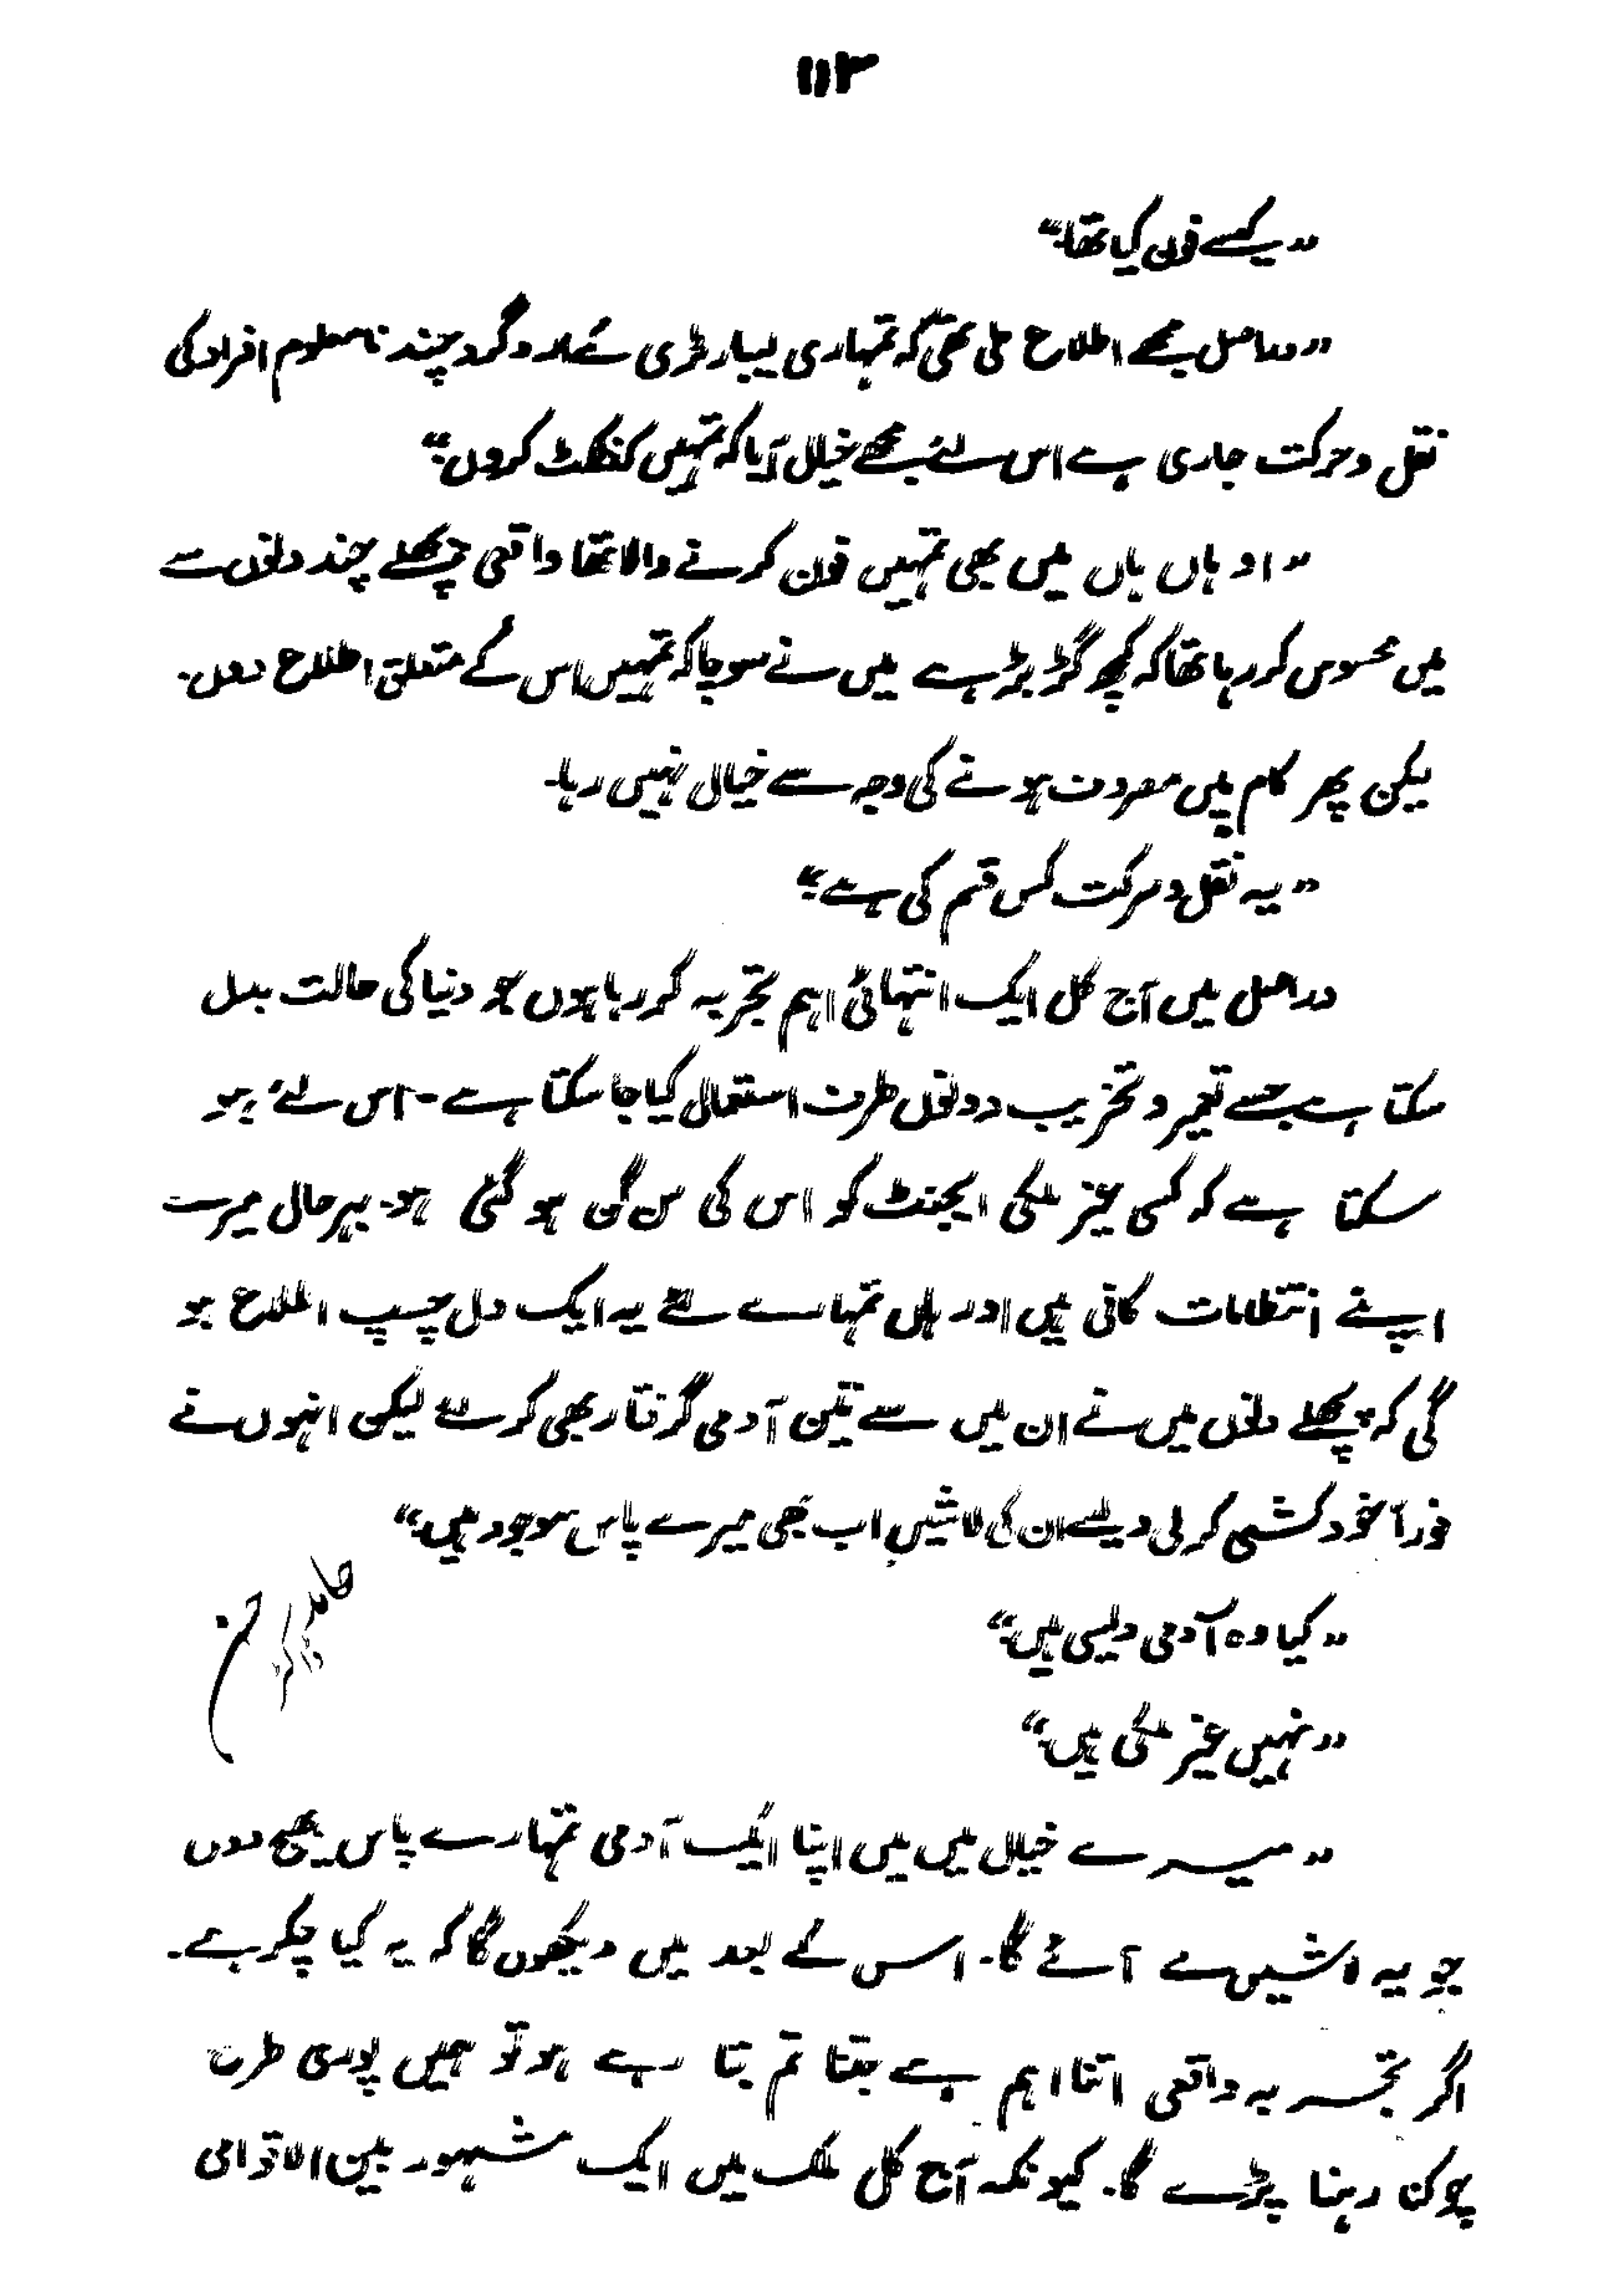 ۱۱۳
”کیسے فون کیا تھا“
”دراصل مجھے اطلاع ملی تھی کہ تمہاری لیبارٹری کے ارد گرد چند نامعلوم افراد کی
نقل و حرکت جاری ہے اس لئے مجھے خیال آیا کہ تمہیں کنٹکٹ کروں“
”او ہاں ہاں میں بھی تمہیں فون کرنے والا تھا واقعی پچھلے چند دنوں سے
میں محسوس کر رہا تھا کہ کچھ گڑ بڑ ہے میں نے سوچا کہ تمہیں اس کے متعلق اطلاع دوں۔
لیکن پھر کام میں مصروف ہونے کی وجہ سے خیال نہیں رہا۔
”یہ نقل و حرکت کس قسم کی ہے“
دراصل میں آج کل ایک انتہائی اہم تجربہ کر رہا ہوں جو دنیا کی حالت بدل
سکتا ہے جسے تعمیر و تخریب دونوں طرف استعمال کیا جا سکتا ہے۔ اس لئے ہو
سکتا ہے کہ کسی غیر ملکی ایجنٹ کو اس کی سن گن ہو گئی ہو۔ بہرحال میرے
اپنے انتظامات کافی ہیں اور ہاں تمہارے لئے یہ ایک دل چسپ اطلاع ہو
گی کہ پچھلے دنوں میں نے ان میں سے تین آدمی گرفتار بھی کر لئے لیکن انہوں نے
فوراً خود کشی کر لی ویسے ان کی لاشیں اب بھی میرے پاس موجود ہیں“
”کیا وہ آدمی دیسی ہیں“
”نہیں غیر ملکی ہیں“
”میرے خیال میں میں اپنا ایک آدمی تمہارے پاس بھیج دوں
جو یہ لاشیں لے آئے گا۔ اس کے بعد میں دیکھوں گا کہ یہ کیا چکر ہے۔
اگر تجربہ واقعی اتنا اہم ہے جتنا تم بتا رہے ہو تو ہمیں پوری طرح
چوکن رہنا پڑے گا۔ کیونکہ آج کل ملک میں ایک مشہور بین الاقوامی